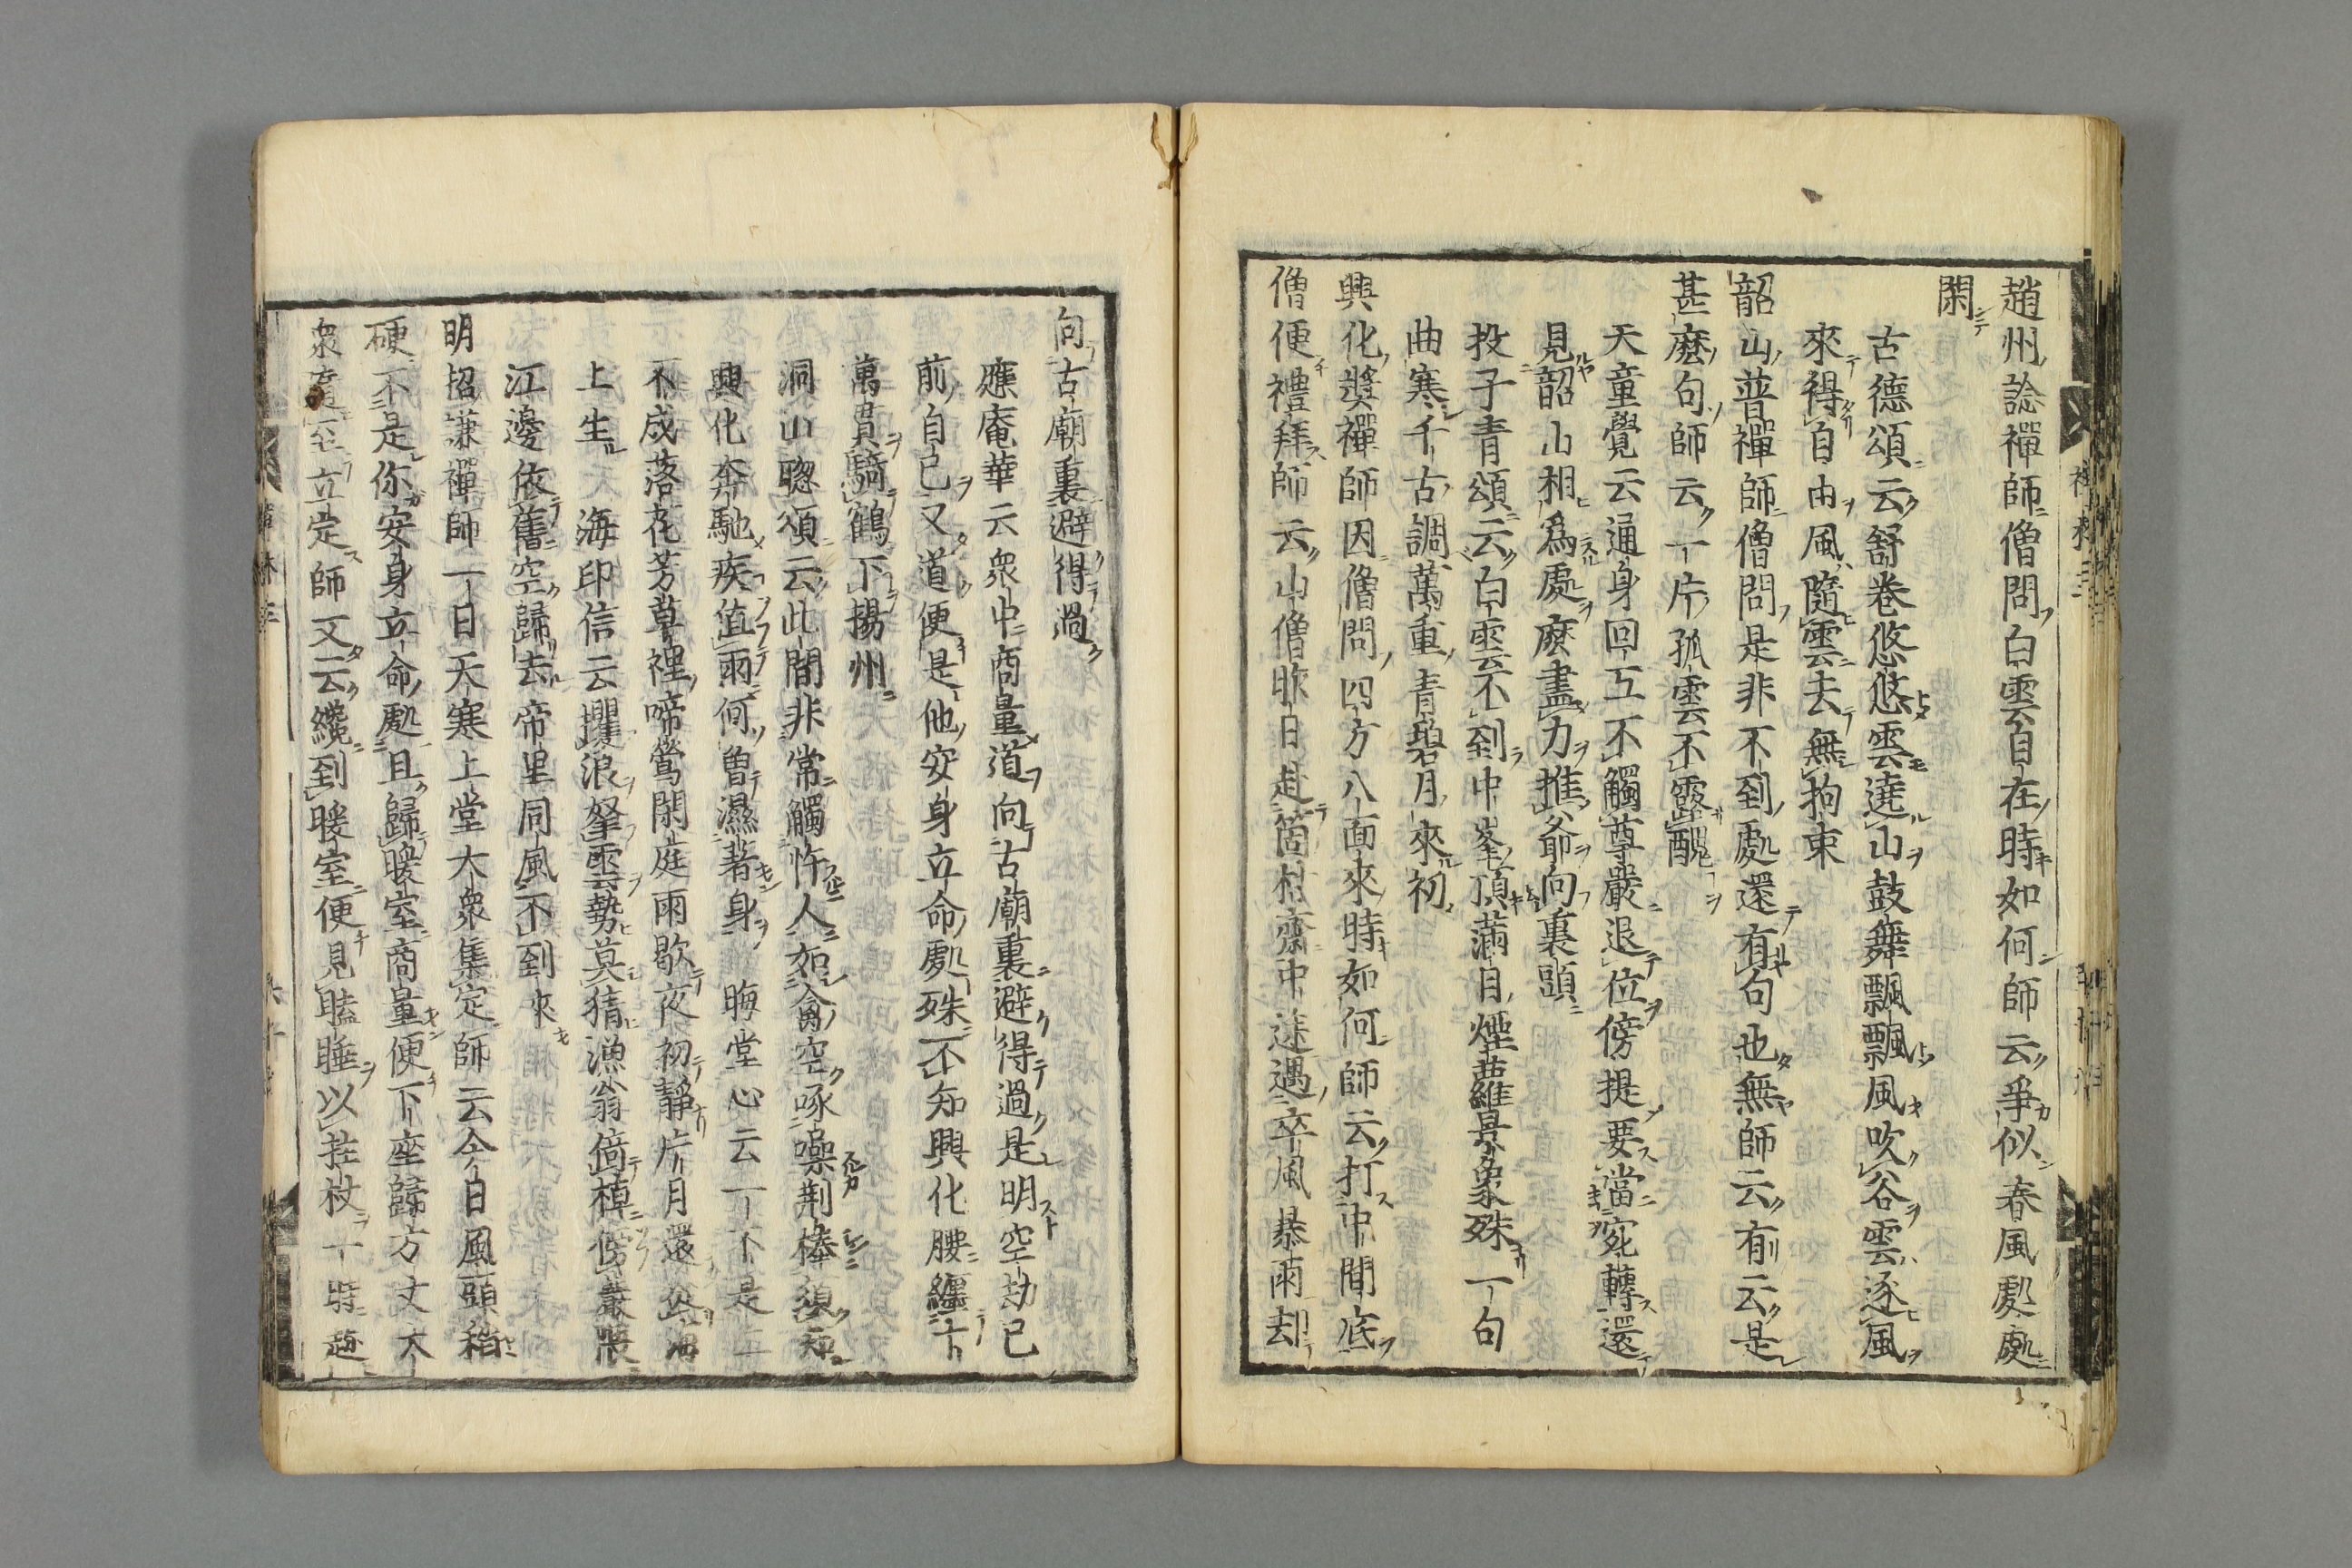 趙州諗禪師僧問白雲自在時如何師云爭似春風處處
閑
古德頌云舒卷悠悠雲遶山鼓舞飄飄風吹谷雲逐風
來得自由風隨雲去無拘束
韶山普禪師僧問是非不到處還有句也無師云有云是
甚麼句師云一片孤雲不露醜
天童覺云通身回互不觸尊嚴退位傍提要當宛轉還
見韶山相爲處麼盡力推爺向裏頭
投子青頌云白雲不到中峯頂滿目煙蘿景象殊一句
曲寒千古調萬重青碧月來初
興化奬禪師因僧問四方八面來時如何師云打中間底
僧便禮拜師云山僧昨日赴箇村齋中途遇卒風暴雨却
向古廟裏避得過
應庵華云衆中商量道向古廟裏避得過是明空劫已
前自已又道便是他安身立命處殊不知興化腰纏十
萬貫騎鶴下揚州
洞山聰頌云此間非常觸忤人如禽空啄噪荆榛須知
興化奔馳疾値雨何曽濕著身 晦堂心云一不是二
不成落花芳草裡啼鶯閑庭雨歇夜初靜片月還從海
上生 海印信云攫浪拏雲勢莫猜漁翁倚棹傍巖隈
江邊依舊空歸去帝里同風不到來
明招謙禪師一日天寒上堂大衆集定師云今日風頭稍
硬不是你安身立命處且歸暖室商量便下座歸方丈大
衆隨至立定師又云纔到暖室便見瞌睡以拄杖一時趂